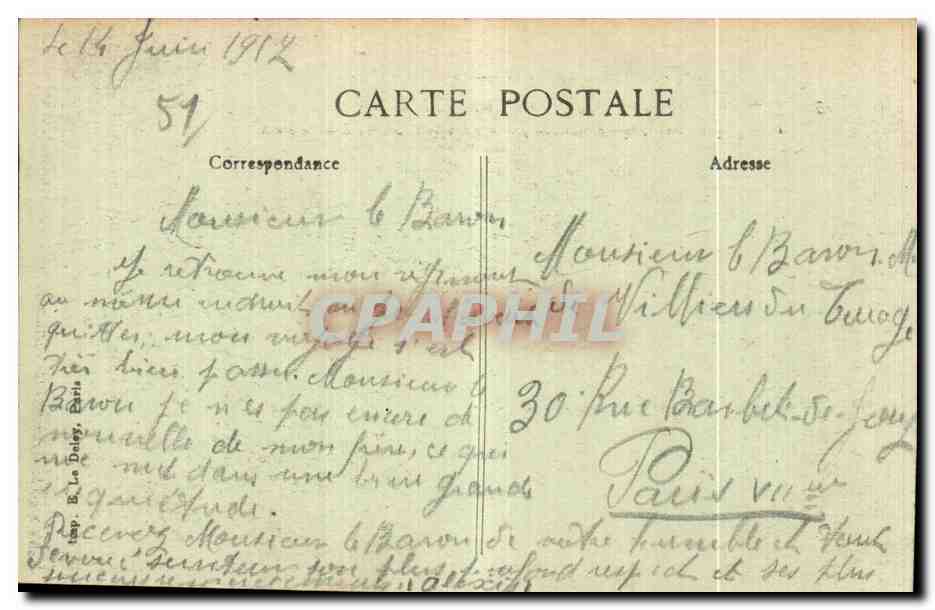 Le 14 Juin 1917
51
CARTE POSTALE
Correspondance
Adresse
Monsieur le Baron
Je retrouve mon régiment
au même endroit
quitter, mon voyage s'est
très bien passé. Monsieur le
Baron je n'es pas encore de
nouvelle de mon frère, ce qui
me met dans une bien grande
inquiétude.
Recevez Monsieur le Baron de votre humble et tout
dévoué serviteur son plus profond respect et ses plus
Monsieur le Baron M
de Villiers du Terrage
30 Rue Barbet-de-Jouy
Paris VIIème
Imp. E. Le Deley, Paris
CPAPHIL